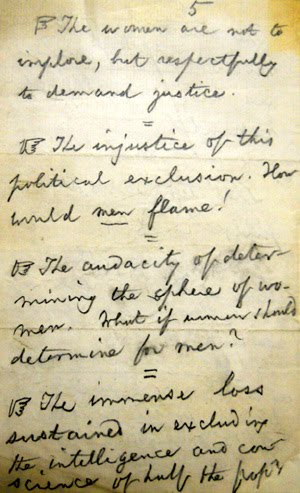 5
☞ The women are not to
implore, but respectfully
to demand justice.
=
☞ The injustice of this
political exclusion. How
would men flame!
=
☞ The audacity of deter-
mining the sphere of wo-
men. What if women should
determine for men?
=
☞ The immense loss
sustained in excluding
the intelligence and con-
science of half the pop?